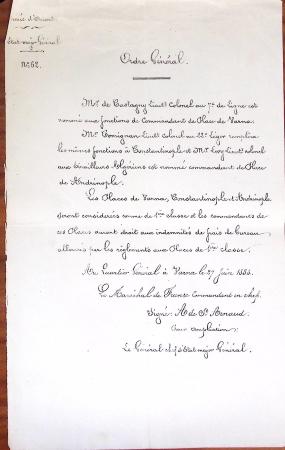 Armée d'Orient
Etat-major Général
N° 62.
Ordre Général.
Mr. de Castagny Lieutt Colonel au 7e de Ligne est
nommé aux fonctions de Commandant de Place de Varna.
Mr. Lieutt Colonel au 22e léger remplira
les mêmes fonctions à Constantinople et Mr. Levy Lieutt Colonel
aux tirailleurs Algériens est nommé commandant de Place
de Andrinople.
Les Places de Varna, Constantinople et Andrinople
seront considérées comme de 1ère classe et les commandants de
ces Places auront droit aux indemnités de frais de bureau
alloués par les règlements aux Places de 1ère classe.
Au Quartier Général à Varna le 27 Juin
Le Maréchal de France Commandant en chef
Signé: A. de St. Arnaud
Pour ampliation:
Le Général chef d'Etat-major Général.